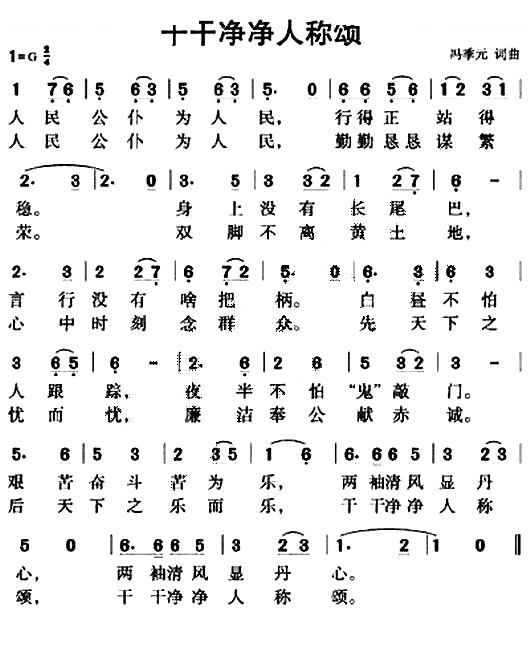 十干净净人称颂
1=G 2/4
冯季元 词曲
1 76 | 5 63 | 5 63 | 5. 0 | 66 56 | 12 31 |
人民公仆为人民，行得正站得
人民公仆为人民，勤勤恳恳谋繁
2. 3 | 2. 0 | 3. 5 | 3 32 | 1 27 | 6 - |
稳。身上没有长尾巴，
荣。双脚不离黄土地，
2. 3 | 2 27 | 6 72 | 5. 0 | 6. 3 | 6 3 |
言行没有啥把柄。白昼不怕
心中时刻念群众。先天下之
3 65 | 6 … | 2. 6 | 2 6 | 5 32 | 3 - |
人跟踪，夜半不怕“鬼”敲门。
忧而忧，廉洁奉公献赤诚。
5. 6 | 5 3 | 2 35 | 1 6 | 6. 66 5 | 3 23 |
艰苦奋斗苦为乐，两袖清风显丹
后天下之乐而乐，干干净净人称
5 0 | 6. 66 5 | 3 23 | 1. 2 | 1 0 ‖
心，两袖清风显丹心。
颂，干干净净人称颂。